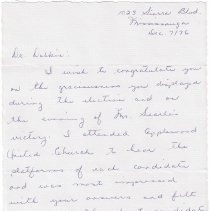 1725 Sierra Blvd.
Mississauga
Dec 7/76
De Laskin:
I wish to congratulate you
on the graciousness you displayed
during the election and on
the evening of Mr. Searle's
victory. I attended Applewood
United Church to hear the
platforms of each candidate
and was most impressed
with your answers and felt